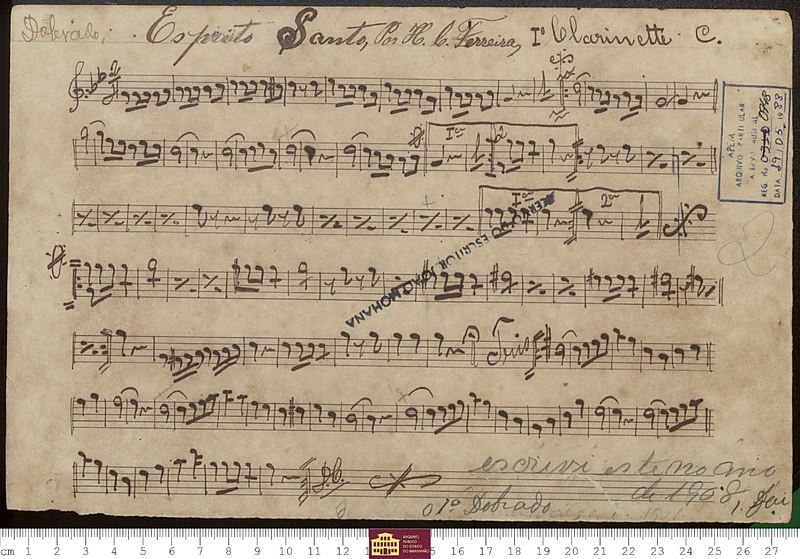 Dobrado, Espirito Santo, Por H. C. Ferreira, 1º Clarinette C.
APEM
ARQUIVO PARTICULAR
REG. Nº
DATA 19/05/1988
1ª 2
1ª 2ª
ACERVO DO ESCRITOR JOÃO MOHANA
Trio
D.C.
escrivi este no ano
de 1908
O 1º Dobrado
cm 1 2 3 4 5 6 7 8 9 10 11 12 13 14 15 16 17 18 19 20 21 22 23 24 25 26 27
ARQUIVO
PÚBLICO
DO ESTADO
DO MARANHÃO